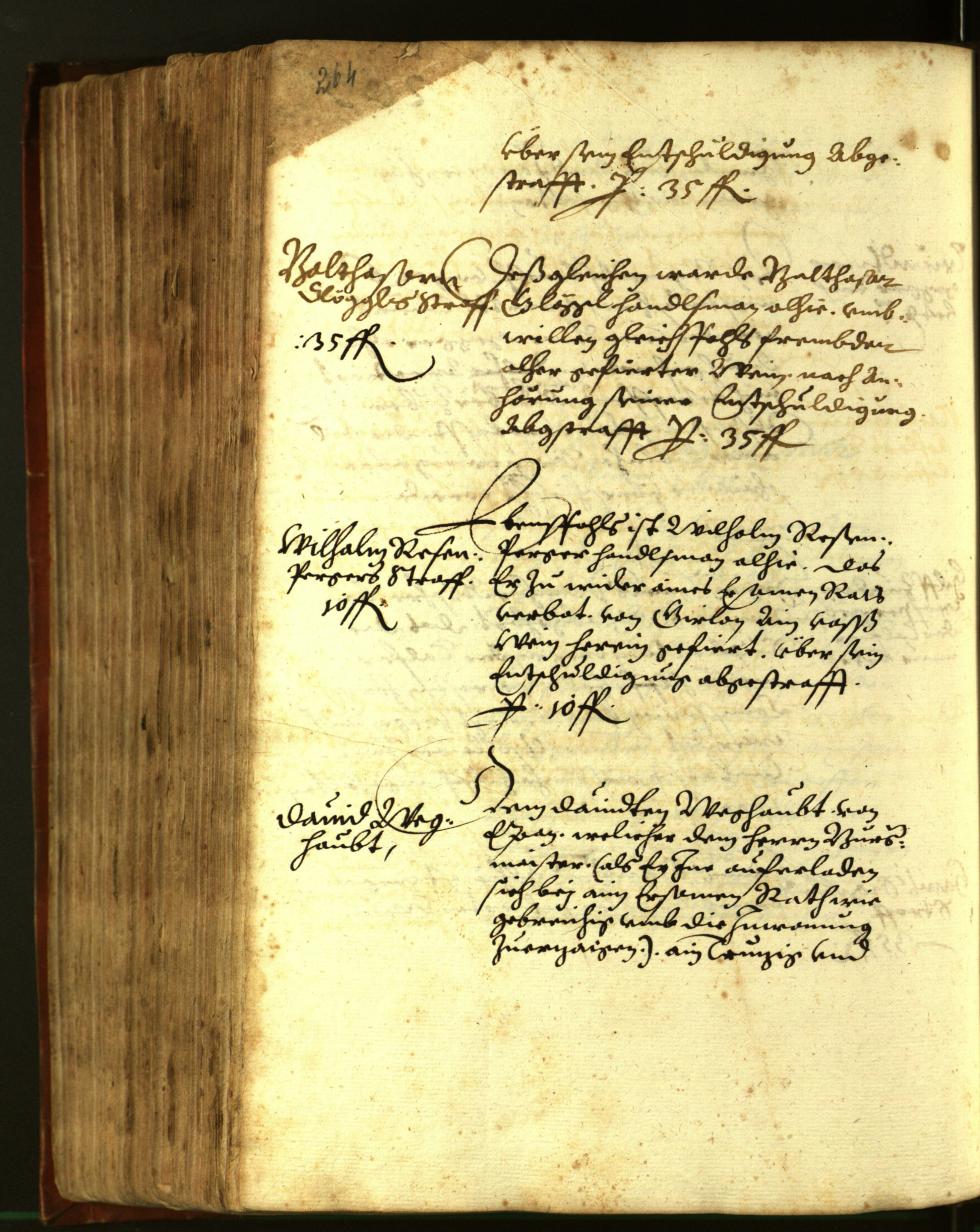 264
Über sein Entschuldigung Abge-
strafft. P: 35 fl.
Balthasarn
Glöggls Straff.
:35 fl.
Deßgleichen warde Balthasar
Glöggl handlsman alhie. umb-
willen gleichfahls frembder
alher gefierter Wein. nach An-
hörung seiner Entschuldigung.
Abgstrafft P: 35 fl
Wilhalm Resen-
pergers Straff.
10 fl.
Ebenffahls ist Wilhalm Resen-
perger handlsman alhie. das
Er zu wider aines Ersamen Rats
verbot. von Girlan ain vasß
Wein herein gefiert. über sein
Entschuldigung abgestrafft.
P: 10 fl.
Dauid Weg-
haubt,
Dem dauidten Weghaubt von
Eppan. welicher dem herrn Burg-
maister. (als Er Ine auferladen
sich bej aim Ersamen Rath wie
gebreichig umb die Inwonung
zuerzaigen). ain Trutzig und